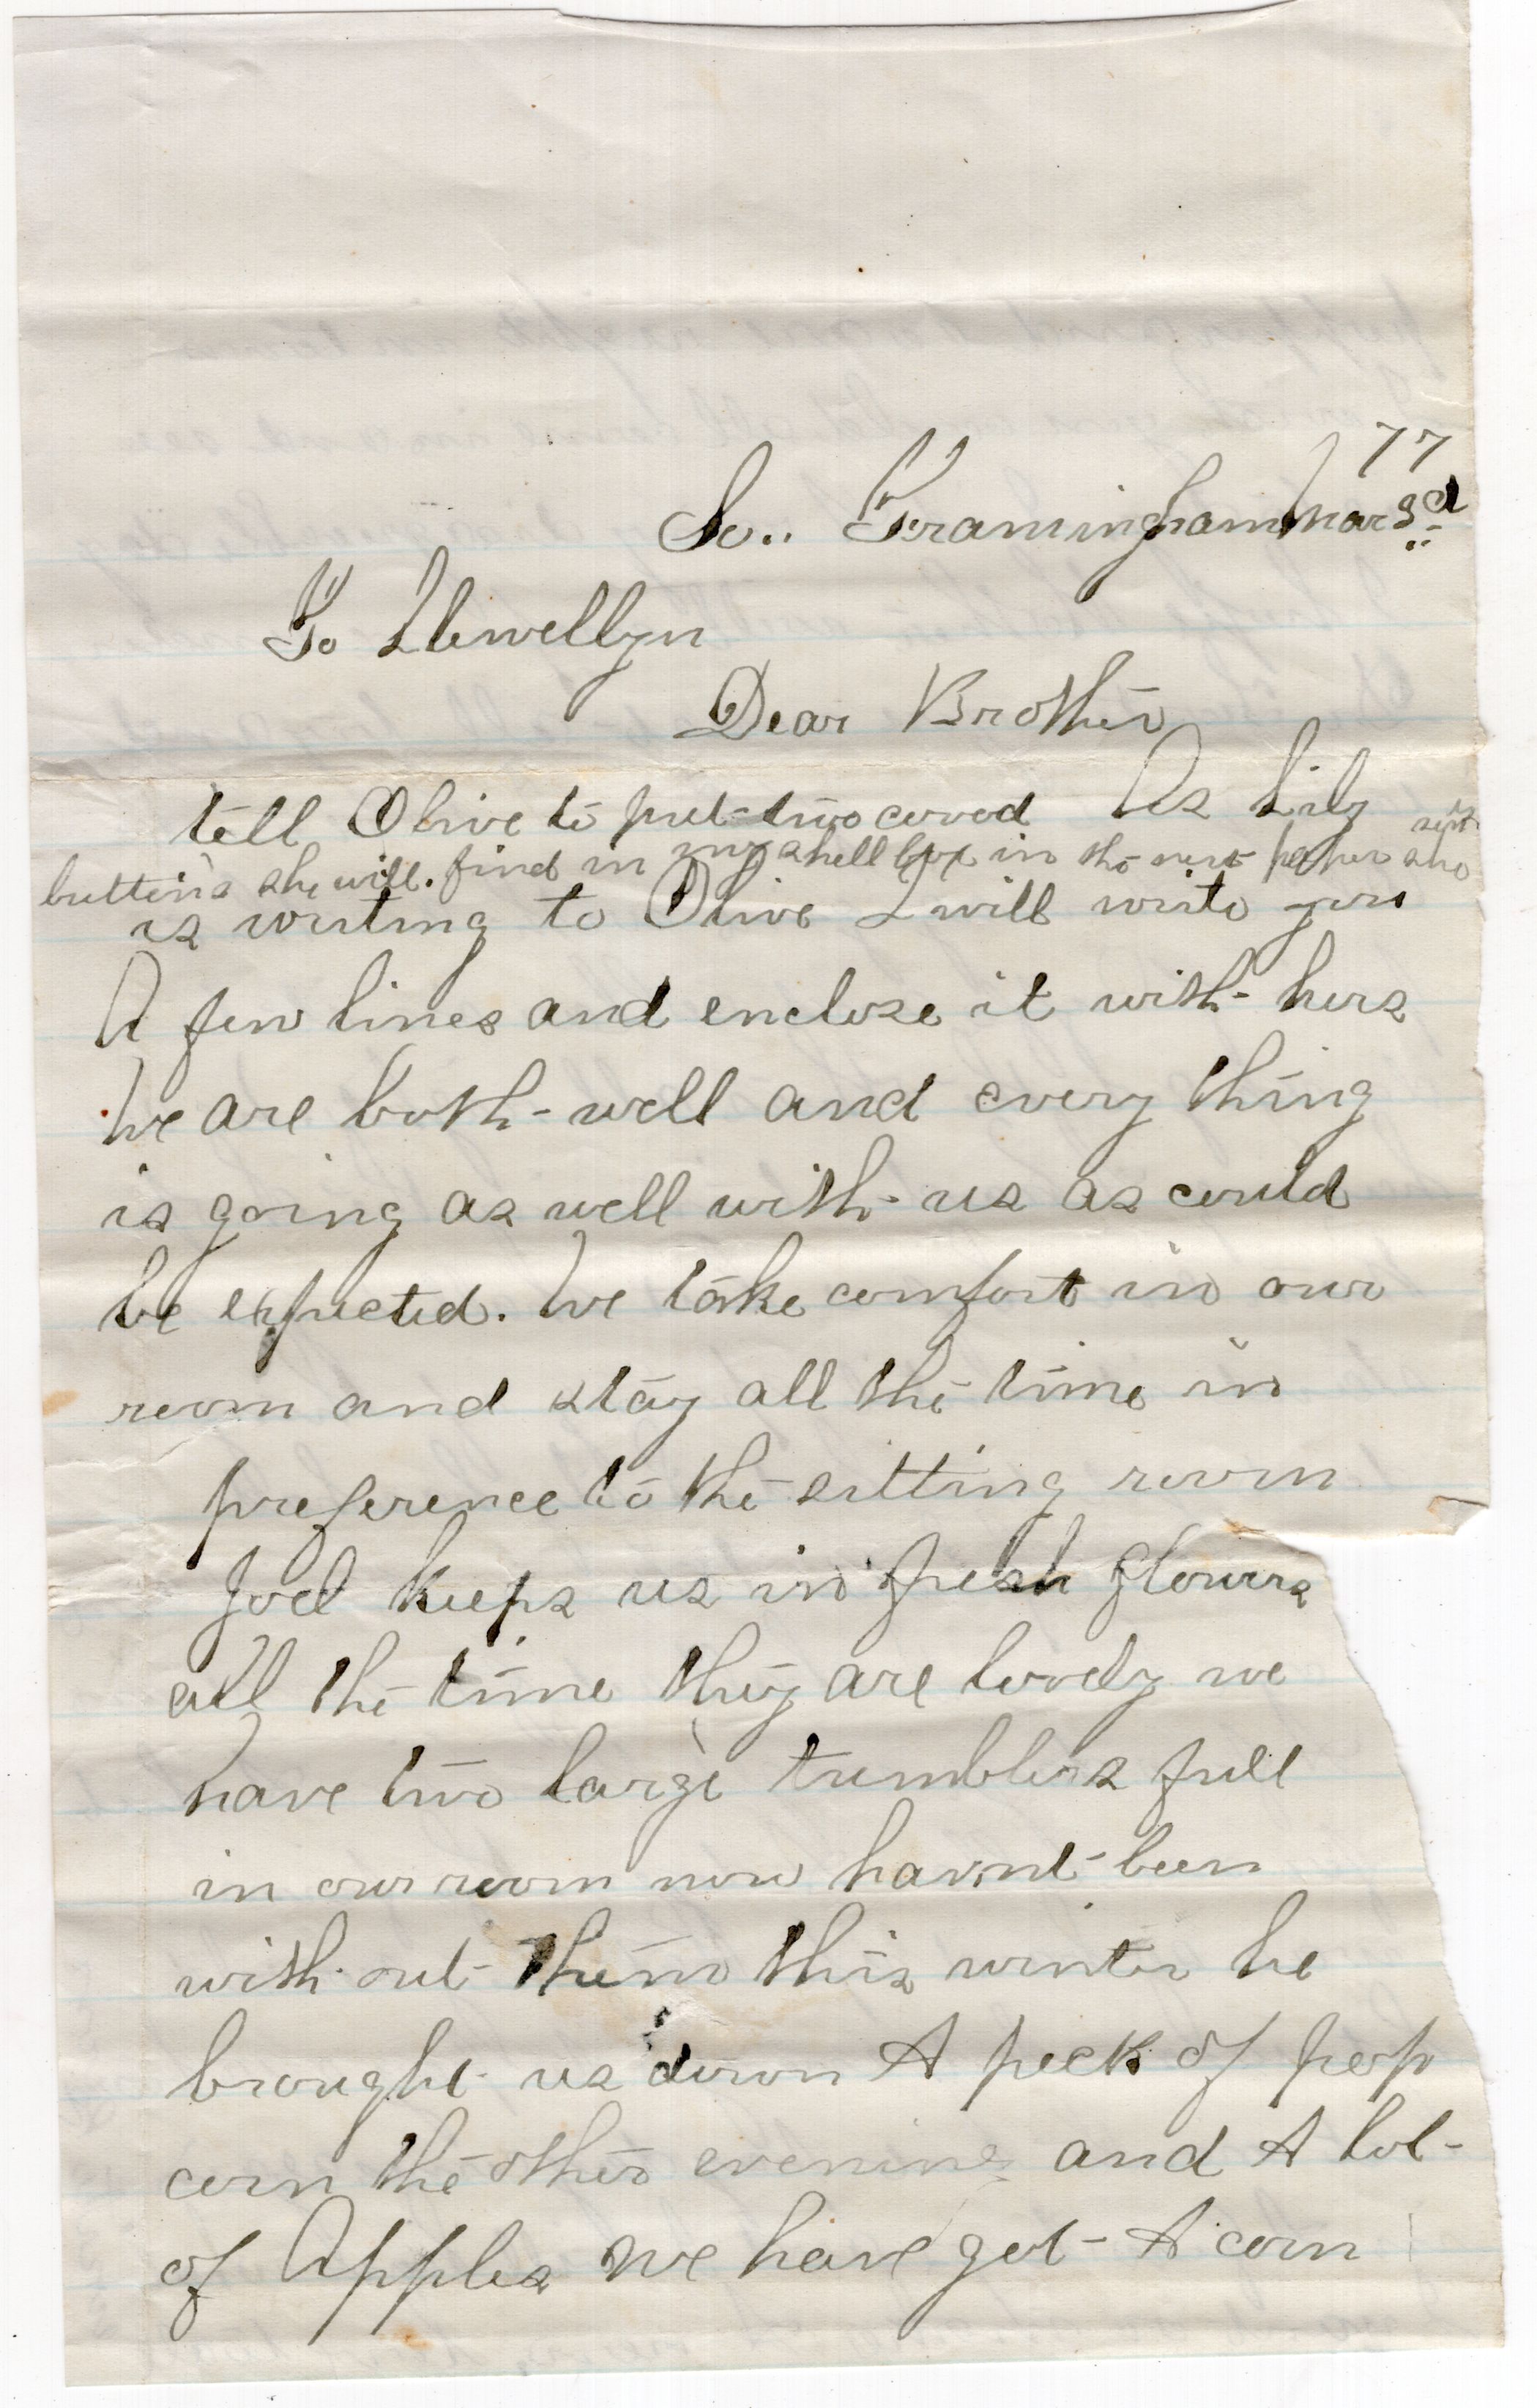 77
So.. Framingham Mar 3d
To Llewellyn
Dear Brother
tell Olive to put two coverd
buttens she will find in my shell box in the next paper she
sends
As Lily
is writing to Olive I will write you
A few lines and enclose it with hers
We are both well and every thing
is going as well with us as could
be expected. We take comfort in our
room and stay all the time in
preference to the sitting room
Joel keeps us in fresh flowers
all the time they are lovely we
have two large tumblers full
in our room now havnt been
with out them this winter he
brought us down A peck of pop
corn the other evening and A lot
of Apples we have got A corn